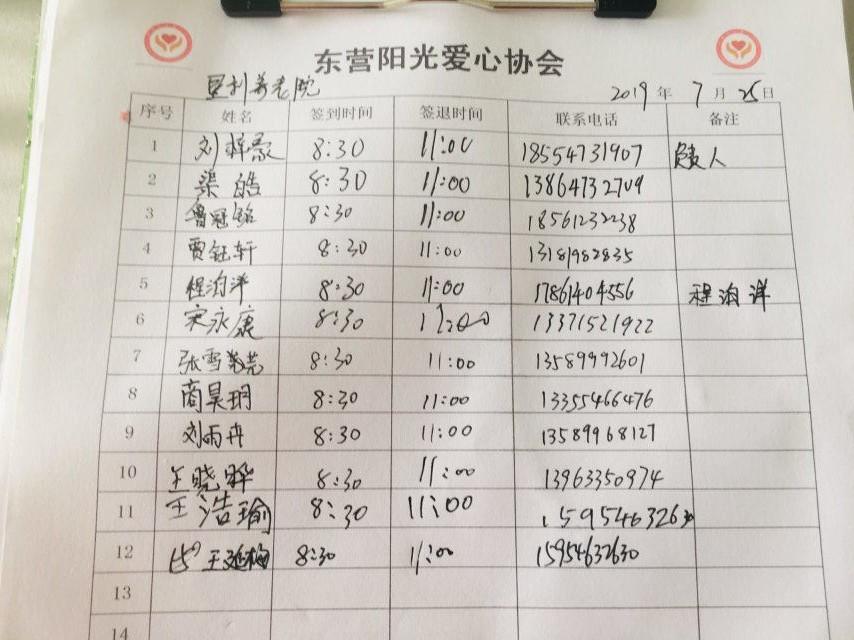 东营阳光爱心协会
垦利养老院 2019年7月25日
序号 姓名 签到时间 签退时间 联系电话 备注
1 刘梓豪 8:30 11:00 18554731907 负责人
2 渠皓 8:30 11:00 13864732709
3 鲁冠铭 8:30 11:00 18561232238
4 贾钰轩 8:30 11:00 13181982835
5 程泊洋 8:30 11:00 17861404556 程泊洋
6 宋永康 8:30 11:00 13371521922
7 张雪 8:30 11:00 13589992601
8 商昊玥 8:30 11:00 13355466476
9 刘雨冉 8:30 11:00 13589968127
10 王晓晔 8:30 11:00 13963350974
11 王浩瑜 8:30 11:00 15954632630
12 王延梅 8:30 11:00 15954632630
13
14